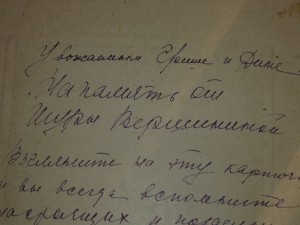 Уважаемым Грише и Дине
На память от
Шуры Вершининой
Взгляните на эту карточ
и вы всегда вспомните
и